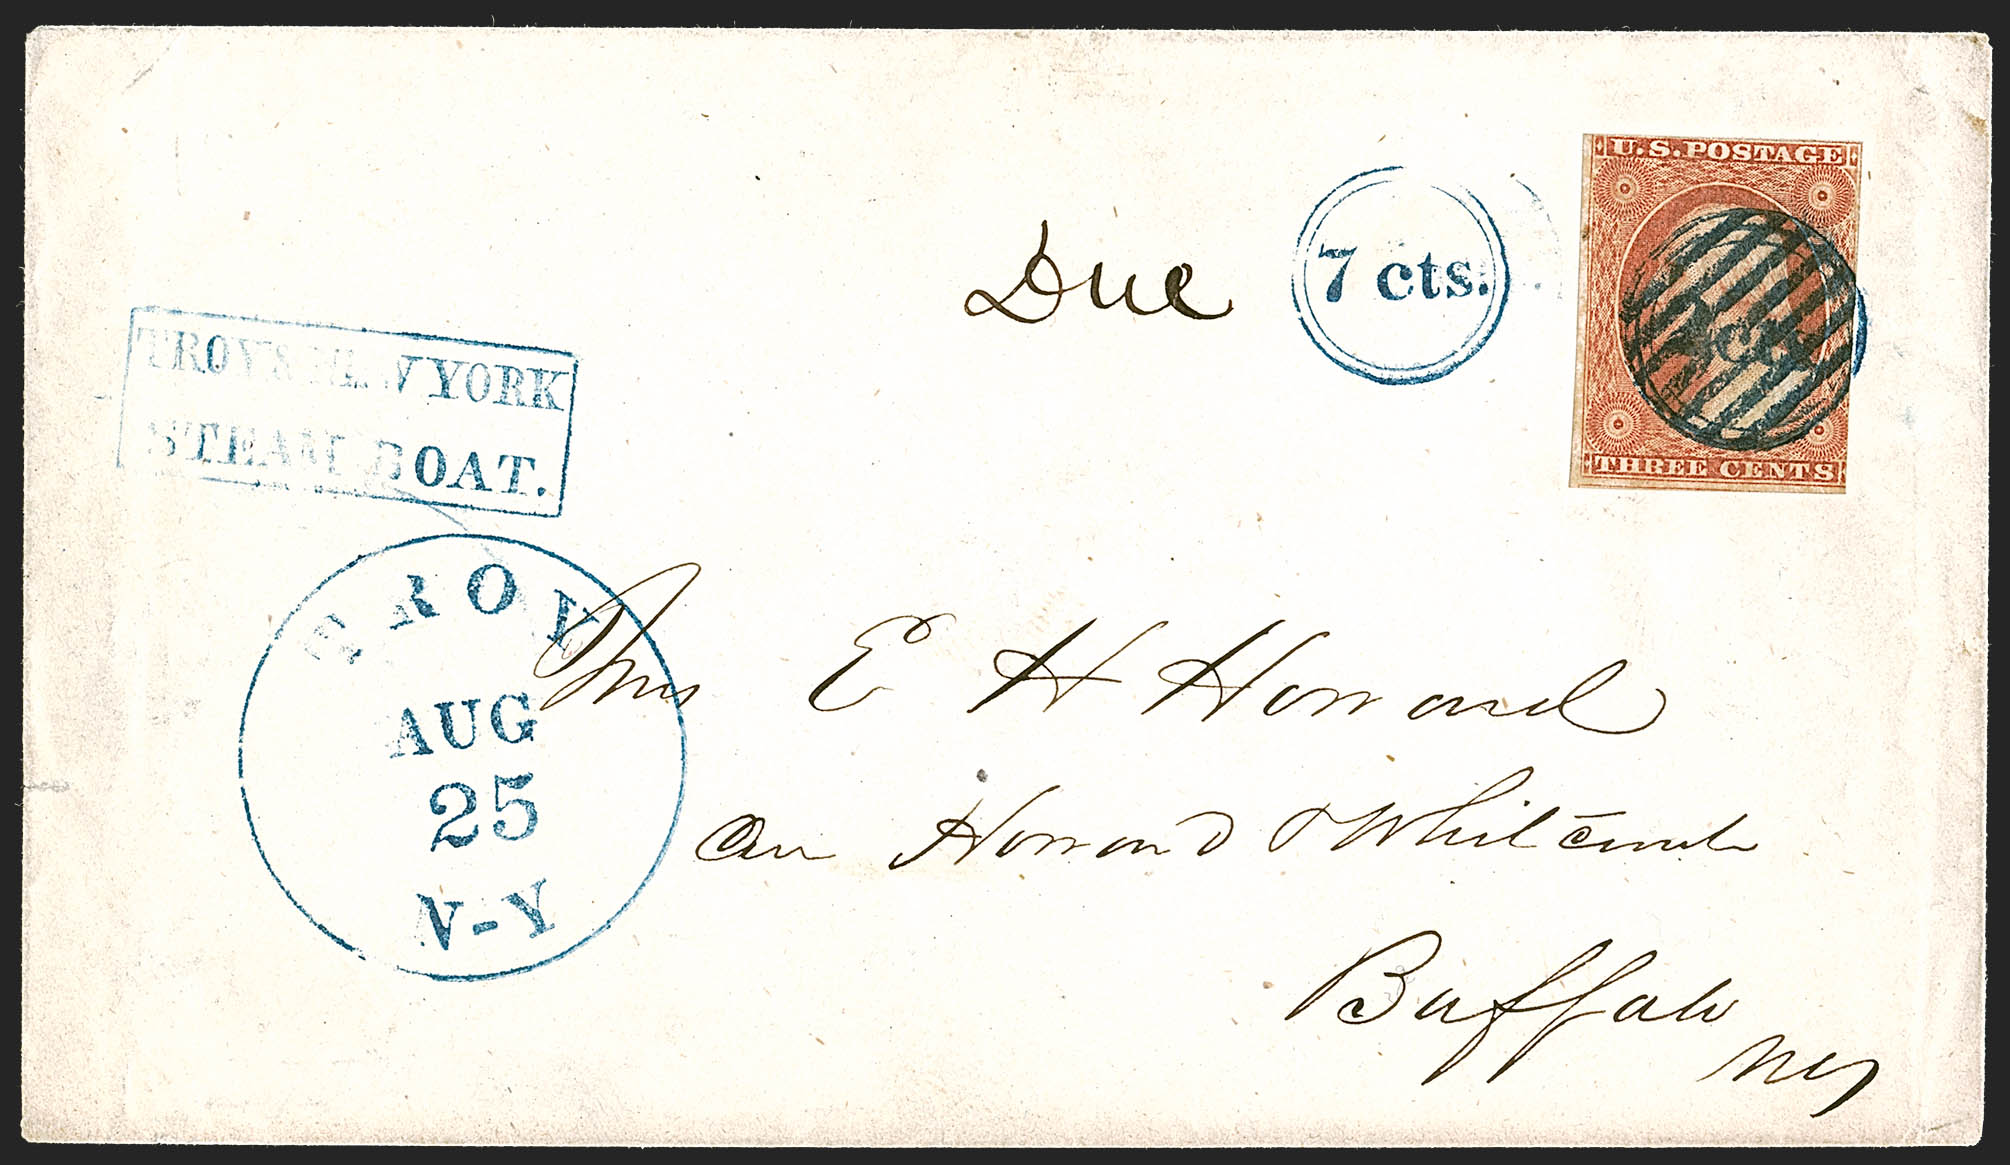 U.S. POSTAGE
Due 7 cts.
THREE CENTS
TROY & NEW YORK
STEAM BOAT.
TROY
AUG
25
N-Y
Mrs E H Howard
Care Howard & Whitcomb
Buffalo
NY